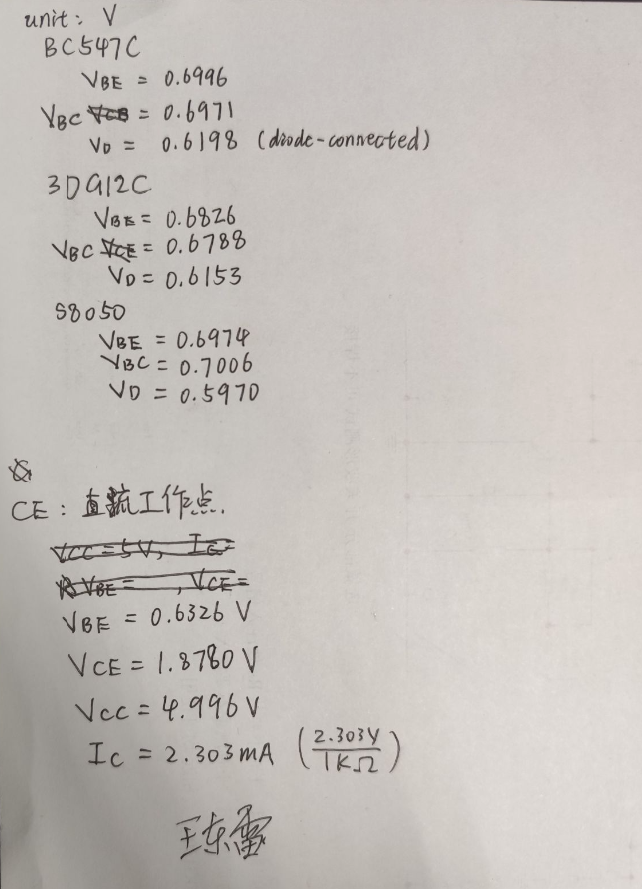 unit: V
BC547C
VBE = 0.6996
VBC VCB = 0.6971
VD = 0.6198 (diode-connected)
3DG12C
VBE = 0.6826
VBC VCE = 0.6788
VD = 0.6153
S8050
VBE = 0.6974
VBC = 0.7006
VD = 0.5970
CE: 直流工作点.
VCC = 5V, IC =
VBE = , VCE =
VBE = 0.6326 V
VCE = 1.8780 V
VCC = 4.996 V
IC = 2.303mA (2.303V/1KΩ)
王东雷